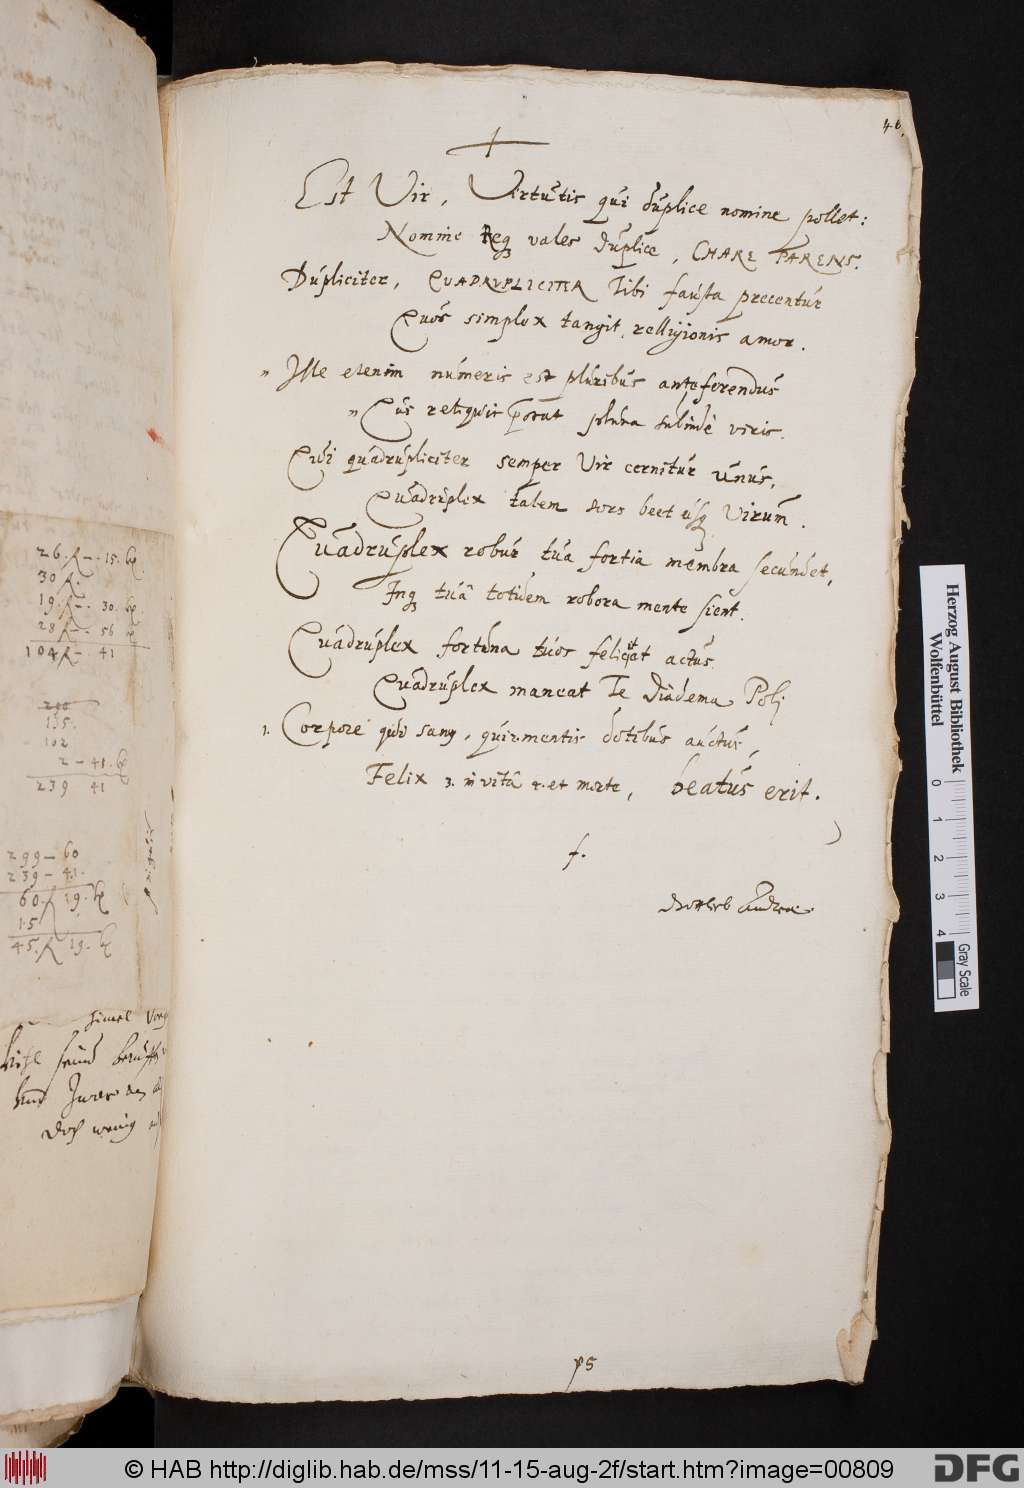 46.
Est Vir, Virtutis qui duplice nomine pollet:
Nomine Reqʒ vales duplice, CHARE PARENS.
Dupliciter, QUADRUPLICITER Tibi fausta precentur
Quos simplex tangit relligionis amor.
" Ille etenim numeris est pluribus anteferendus
" Qui reliquis plura subinde viris.
Qui quadrupliciter semper Vir cernitur unus,
Quadruplex talem sors beet usqʒ Virum.
Quadruplex robur tua fortia membra secundet,
Inqʒ tuâ totidem robora mente sient.
Quadruplex fortuna tuos felicitat actus
Quadruplex maneat Te Diadema Polj
1. Corpore qui sanus, qui 2. mentis dotibus auctus,
Felix 3. in vitâ 4. et morte, beatus erit.
f.
Gottlieb Andreae
PS
26. fl – 15. 
30 fl.
19. fl – 30.
28 fl – 56
104 fl – 41
135.
102
2 – 41.
239 41
299 – 60
239 – 41.
60. fl 19.
15
45. fl 19.
Herzog August Bibliothek
Wolfenbüttel
0 1 2 3 4
Gray Scale
© HAB http://diglib.hab.de/mss/11-15-aug-2f/start.htm?image=00809
DFG